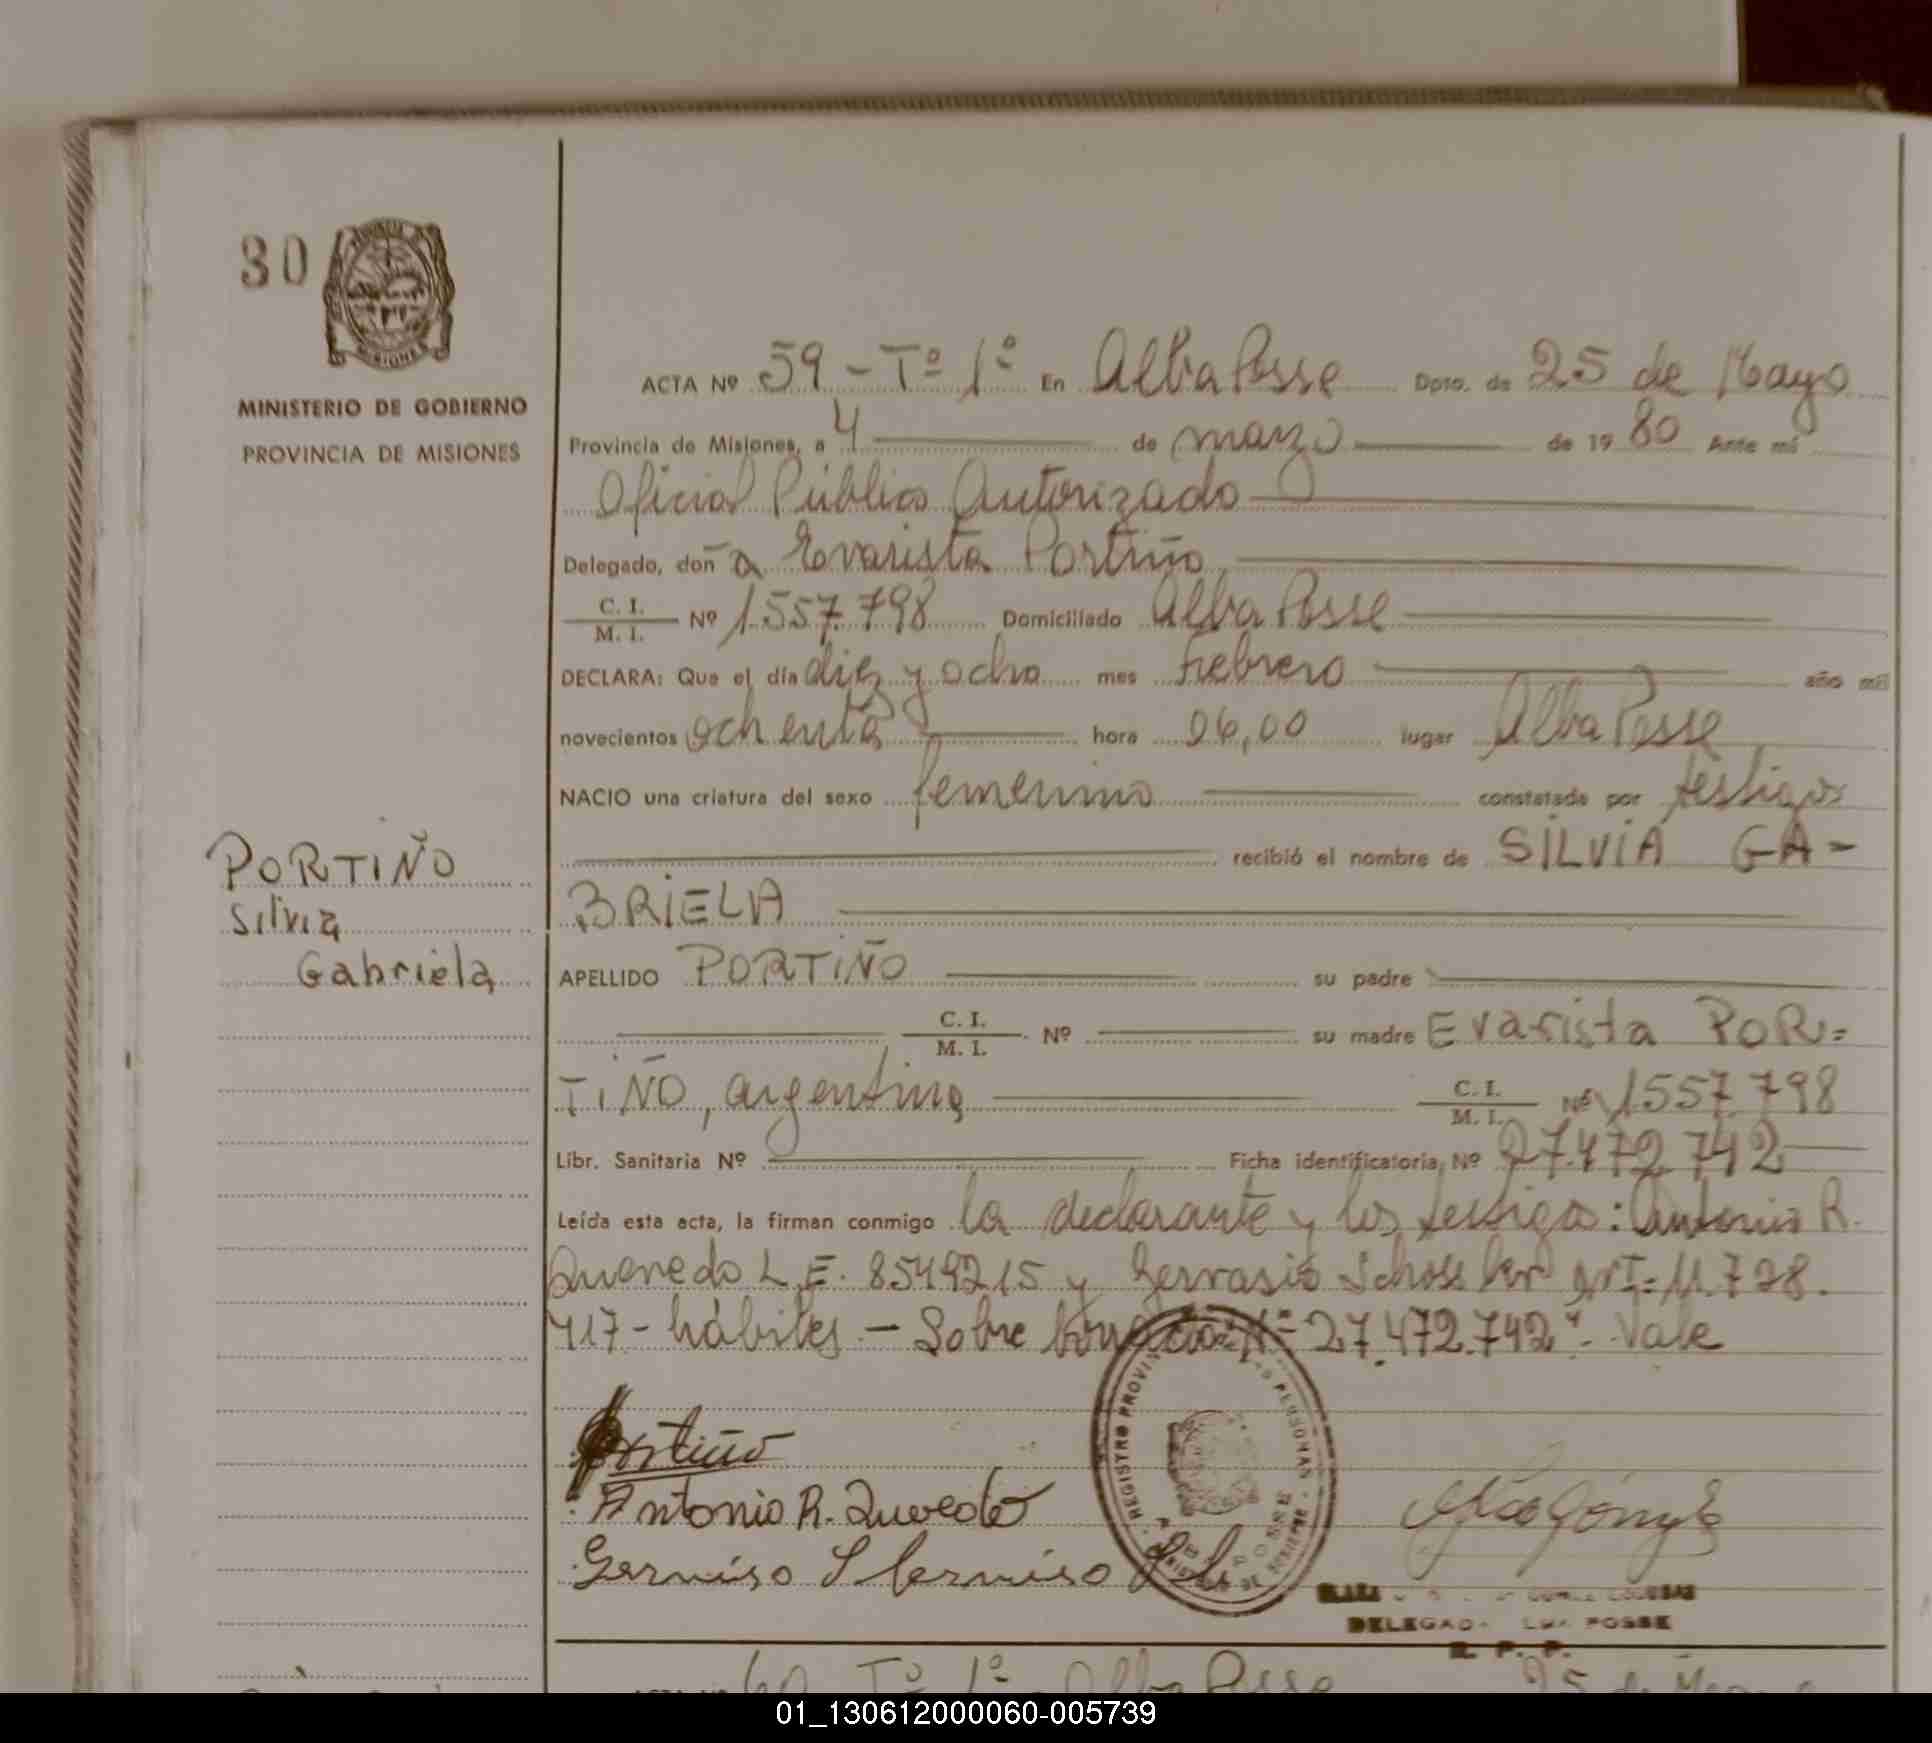 30
MINISTERIO DE GOBIERNO
PROVINCIA DE MISIONES
ACTA Nº 59 - Tº 1º En Alba Posse Dpto. de 25 de Mayo
Provincia de Misiones, a 4 de marzo de 19 80 Ante mí
Oficial Público Autorizado
Delegado, doña Evarista Portiño
C. I.
M. I. Nº 1.557.798 Domiciliado Alba Posse
DECLARA: Que el día diez y ocho mes Febrero año mil
novecientos ochenta hora 06,00 lugar Alba Posse
NACIO una criatura del sexo femenino constatado por testigos
recibió el nombre de SILVIA GA-
BRIELA
PORTIÑO
Silvia
Gabriela
APELLIDO PORTIÑO su padre
C. I.
M. I. Nº su madre Evarista POR=
TIÑO, argentina C. I.
M. I. Nº 1557.798
Libr. Sanitaria Nº Ficha identificatoria Nº 27.472.742
Leída esta acta, la firman conmigo la declarante y los testigos: Antonio R.
Quevedo L.E. 8549215 y Gervasio
417- hábiles - Sobre 27.472.742" - Vale
Portiño
Antonio R. Quevedo
REGISTRO PERSONAS
DELEGAD POSSE
R. P. P.
60 Tº 1º Alba Posse 25 de
01_130612000060-005739